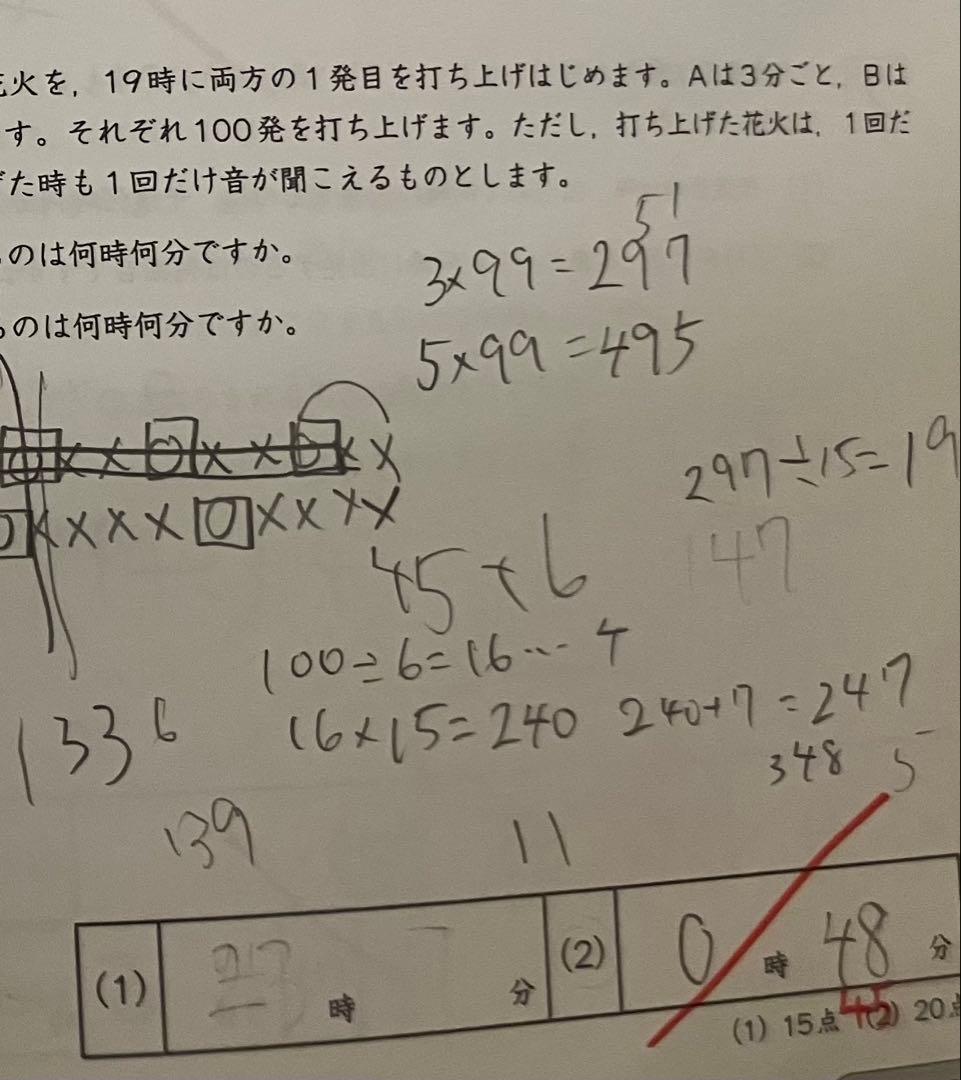 火を，19時に両方の1発目を打ち上げはじめます。Aは3分ごと，Bは
す。それぞれ100発を打ち上げます。ただし，打ち上げた花火は，1回だ
た時も1回だけ音が聞こえるものとします。
のは何時何分ですか。
51
3×99=297
のは何時何分ですか。
5×99=495
○××○××○××
297÷15=19
○××××○××××
147
45+6
100÷6=16…4
16×15=240 240+7=247
1336
348 5
139 11
(1) 時 分 (2) 0時48分
45
(1) 15点 (2) 20点